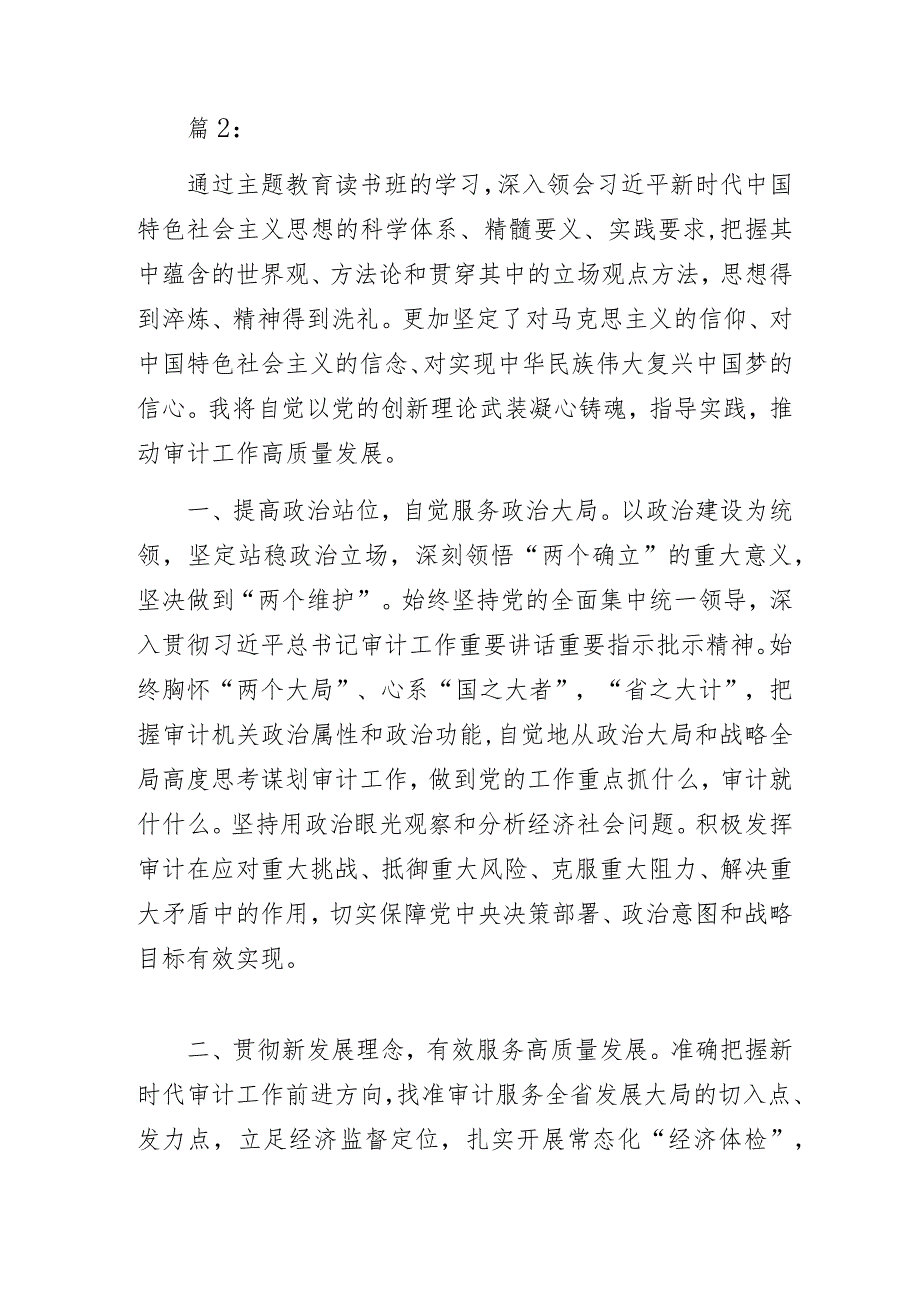 篇2：
通过主题教育读书班的学习,深入领会习近平新时代中国
特色社会主义思想的科学体系、精髓要义、实践要求,把握其
中蕴含的世界观、方法论和贯穿其中的立场观点方法，思想得
到淬炼、精神得到洗礼。更加坚定了对马克思主义的信仰、对
中国特色社会主义的信念、对实现中华民族伟大复兴中国梦的
信心。我将自觉以党的创新理论武装凝心铸魂，指导实践，推
动审计工作高质量发展。
一、提高政治站位，自觉服务政治大局。以政治建设为统
领，坚定站稳政治立场，深刻领悟“两个确立”的重大意义，
坚决做到“两个维护”。始终坚持党的全面集中统一领导，深
入贯彻习近平总书记审计工作重要讲话重要指示批示精神。始
终胸怀“两个大局”、心系“国之大者”，“省之大计”，把
握审计机关政治属性和政治功能,自觉地从政治大局和战略全
局高度思考谋划审计工作，做到党的工作重点抓什么，审计就
什什么。坚持用政治眼光观察和分析经济社会问题。积极发挥
审计在应对重大挑战、抵御重大风险、克服重大阻力、解决重
大矛盾中的作用，切实保障党中央决策部署、政治意图和战略
目标有效实现。
二、贯彻新发展理念，有效服务高质量发展。准确把握新
时代审计工作前进方向,找准审计服务全省发展大局的切入点、
发力点，立足经济监督定位，扎实开展常态化“经济体检”，